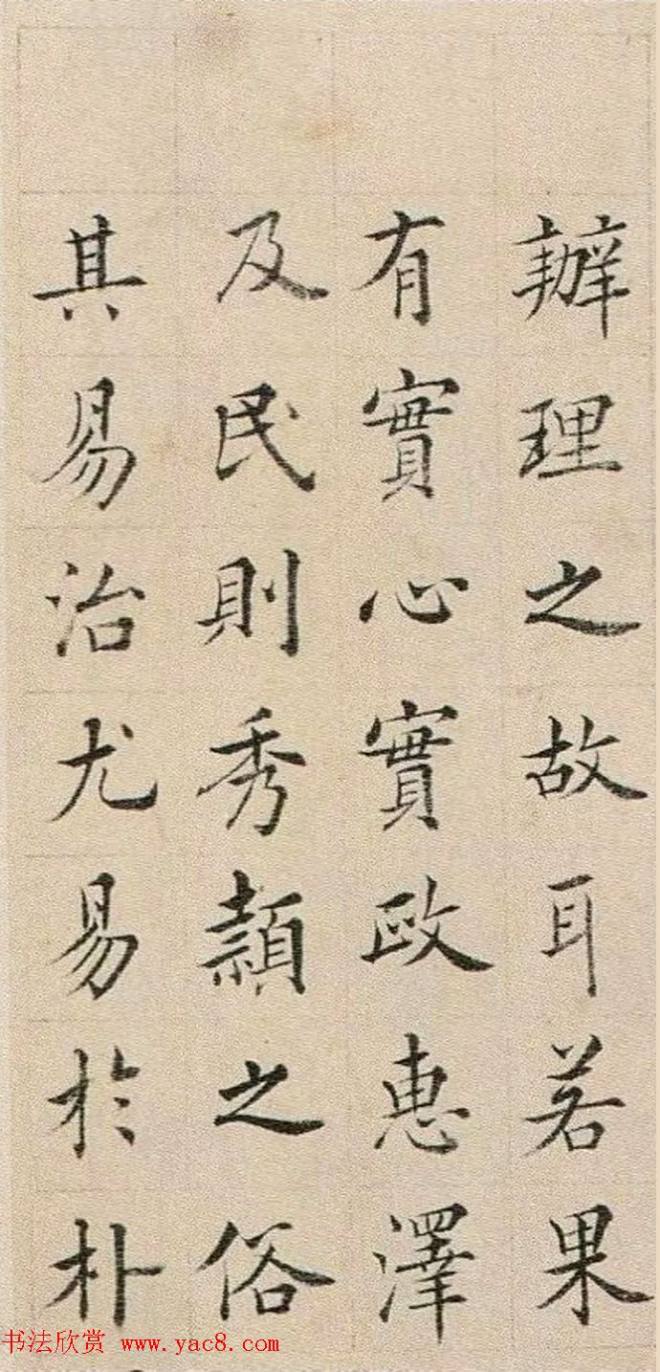 辦理之故耳若果
有實心實政惠澤
及民則秀頴之俗
其易治尤易於朴
书法欣赏 www.yac8.com